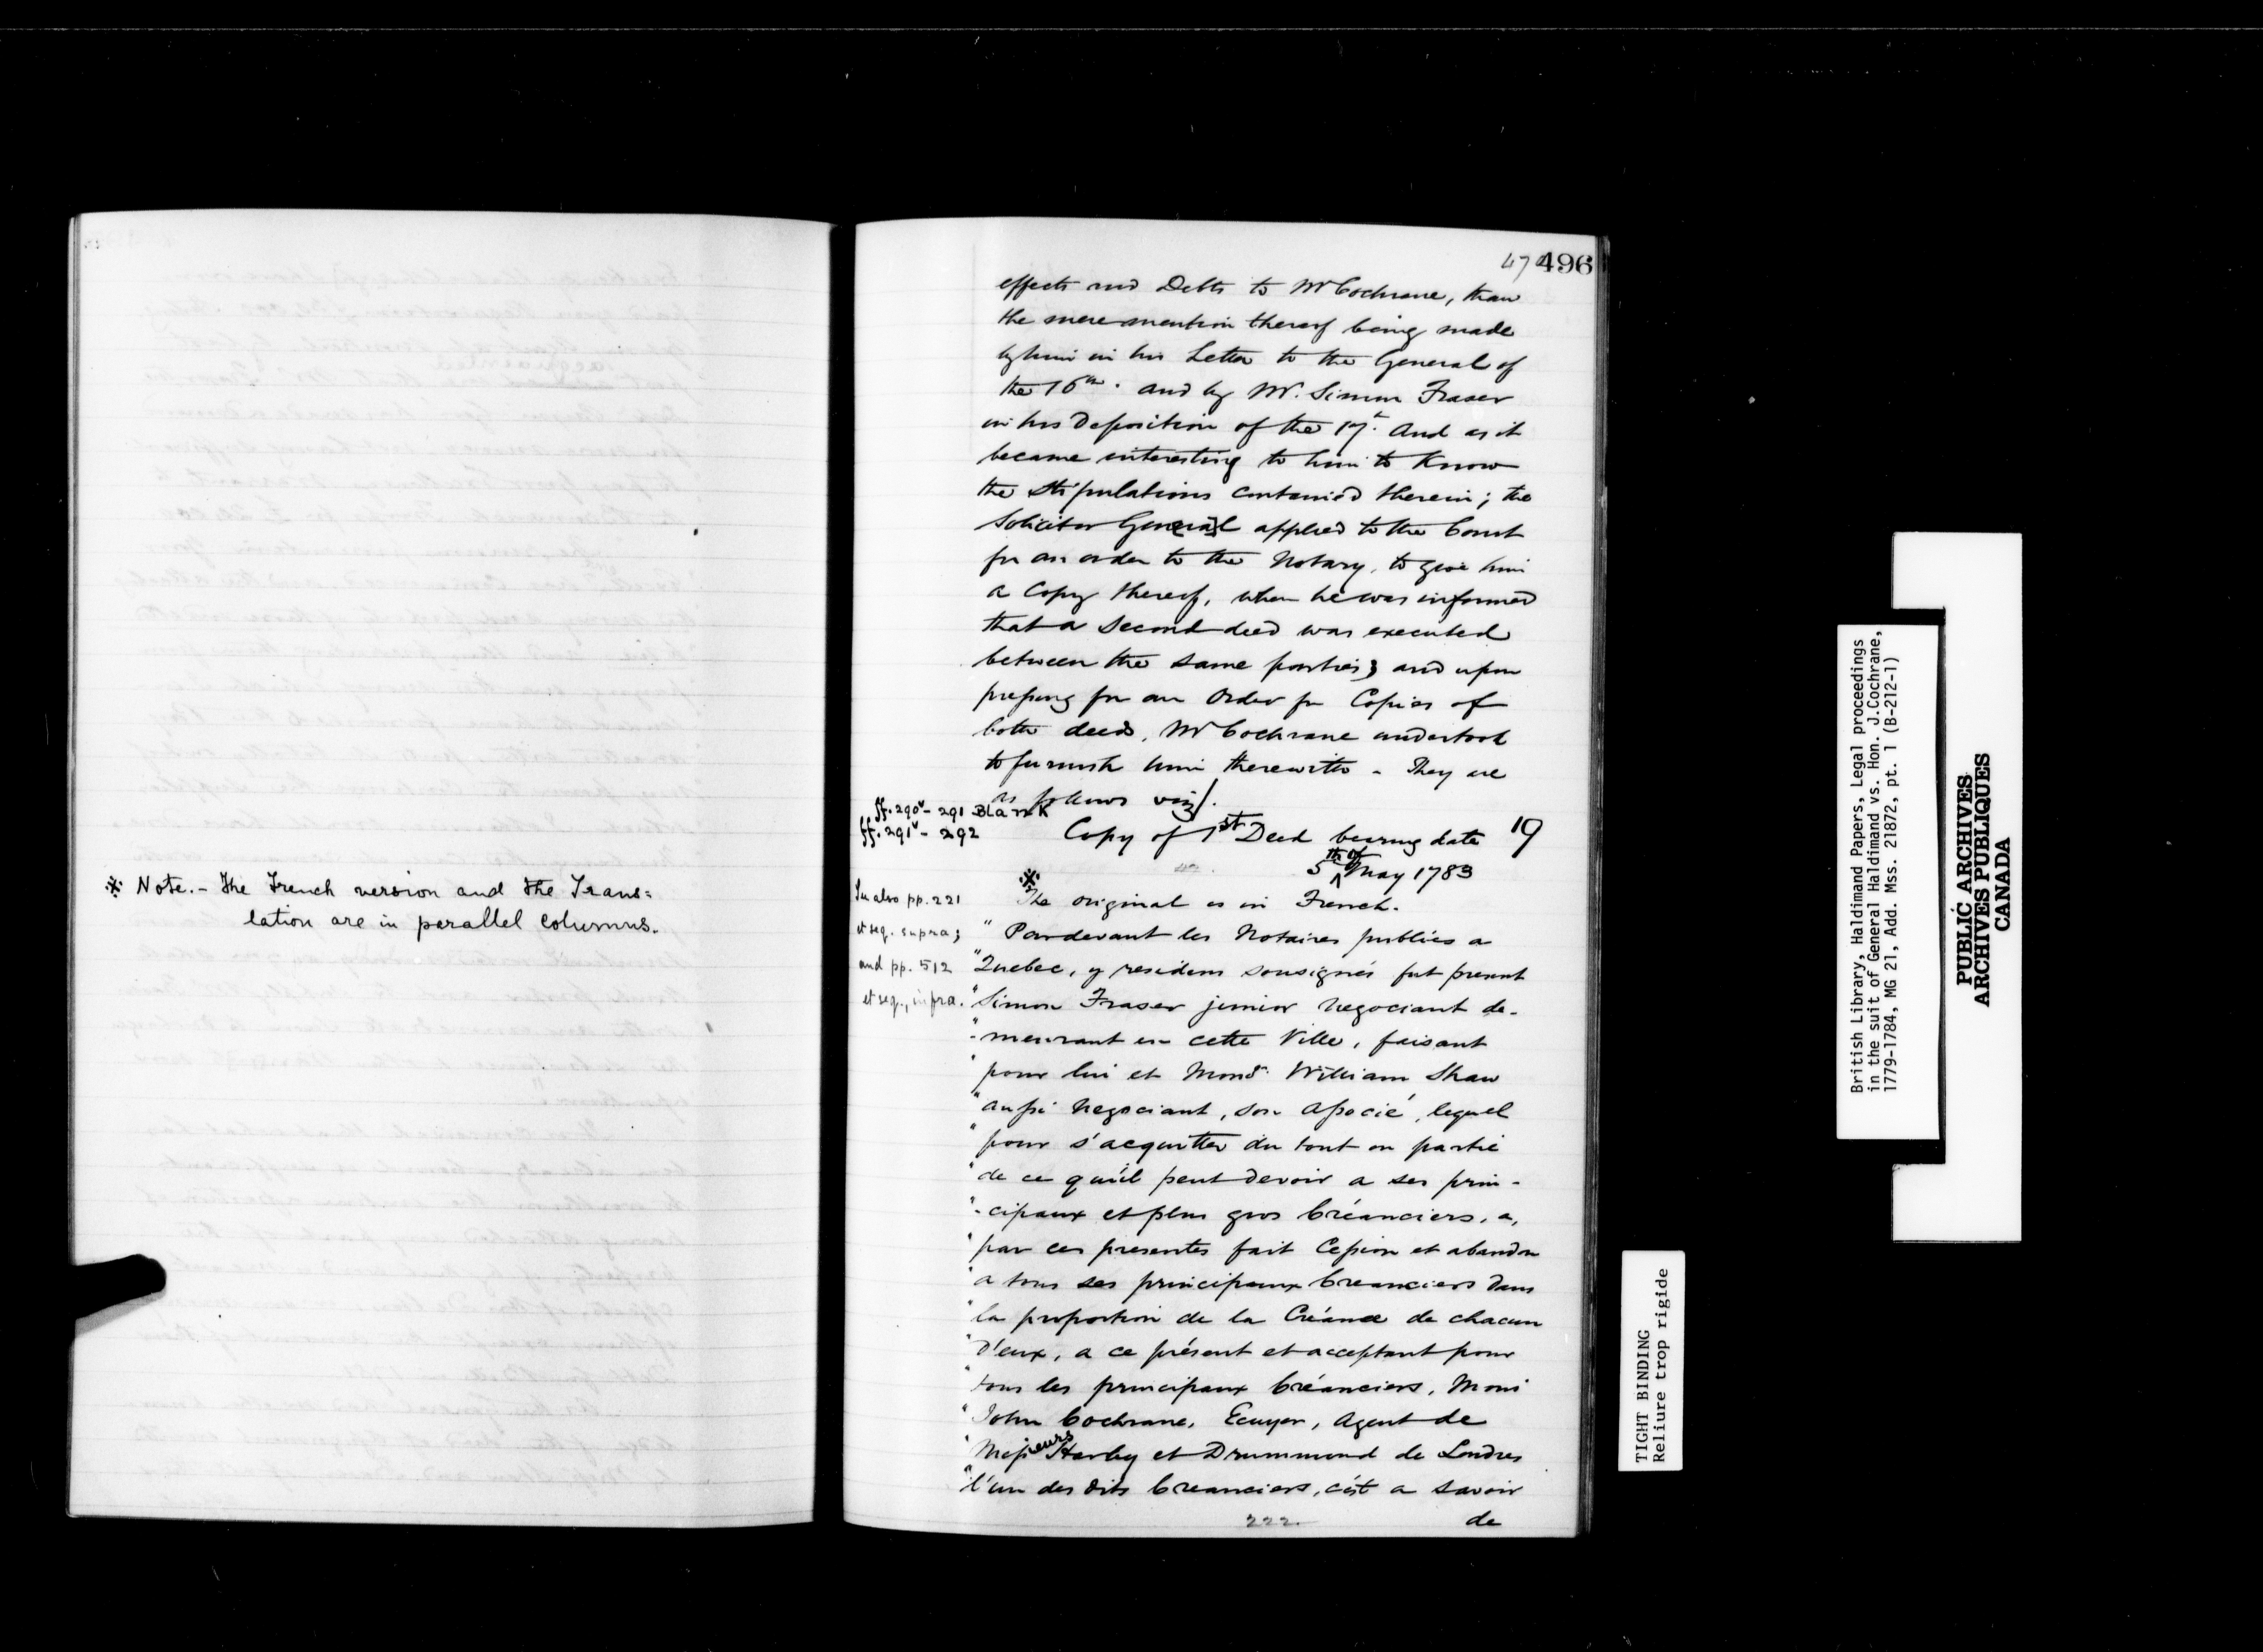 ※ Note. - The French version and the Trans=
lation are in parallel columns.
496
effects and Debts to Mr Cochrane, than
the mere mention thereof being made
by him in his Letter to the General of
the 16th. and by Mr. Simon Fraser
in his Deposition of the 17. And as it
became interesting to him to Know
the Stipulations contained therein; the
Solicitor General applied to the Court
for an order to the Notary, to give him
a Copy thereof, when he was informed
that a Second deed was executed
between the same parties; and upon
preping for an Order for Copies of
both deeds, Mr Cochrane undertook
to furnish him therewith - They are
as follows viz/.
ff. 290v - 291 Blank
ff. 291v - 292
Copy of 1st Deed bearing date 19
5 th of May 1783
※
The original is in French.
See also pp. 221
et seq. supra;
and pp. 512
et seq., infra.
" Pardevant les Notaires publics a
" Quebec, y residens sousignés fut present
" Simon Fraser junior negociant de-
"-meurant en cette Ville, faisant
" pour lui et Monsr. William Shaw
" aussi Negociant, son Associé, lequel
" pour s'acquitter du tout ou partie
" de ce qu'il peut devoir a ses prin-
"-cipaux et plus gros Créanciers, a,
" par ces presentes fait Cession et abandon
" a tous ses principaux Creanciers dans
" la proportion de la Créance de chacun
" d'eux, a ce présent et acceptant pour
" tous les principaux Créanciers, Monsr
" John Cochrane, Ecuyer, Agent de
" Messieurs Harley et Drummond de Londres
" l'un des dits Creanciers, c'est a savoir
222. de
British Library, Haldimand Papers, Legal proceedings
in the suit of General Haldimand vs. Hon. J.Cochrane,
1779-1784, MG 21, Add. Mss. 21872, pt. 1 (B-212-1)
PUBLIC ARCHIVES
ARCHIVES PUBLIQUES
CANADA
TIGHT BINDING
Reliure trop rigide